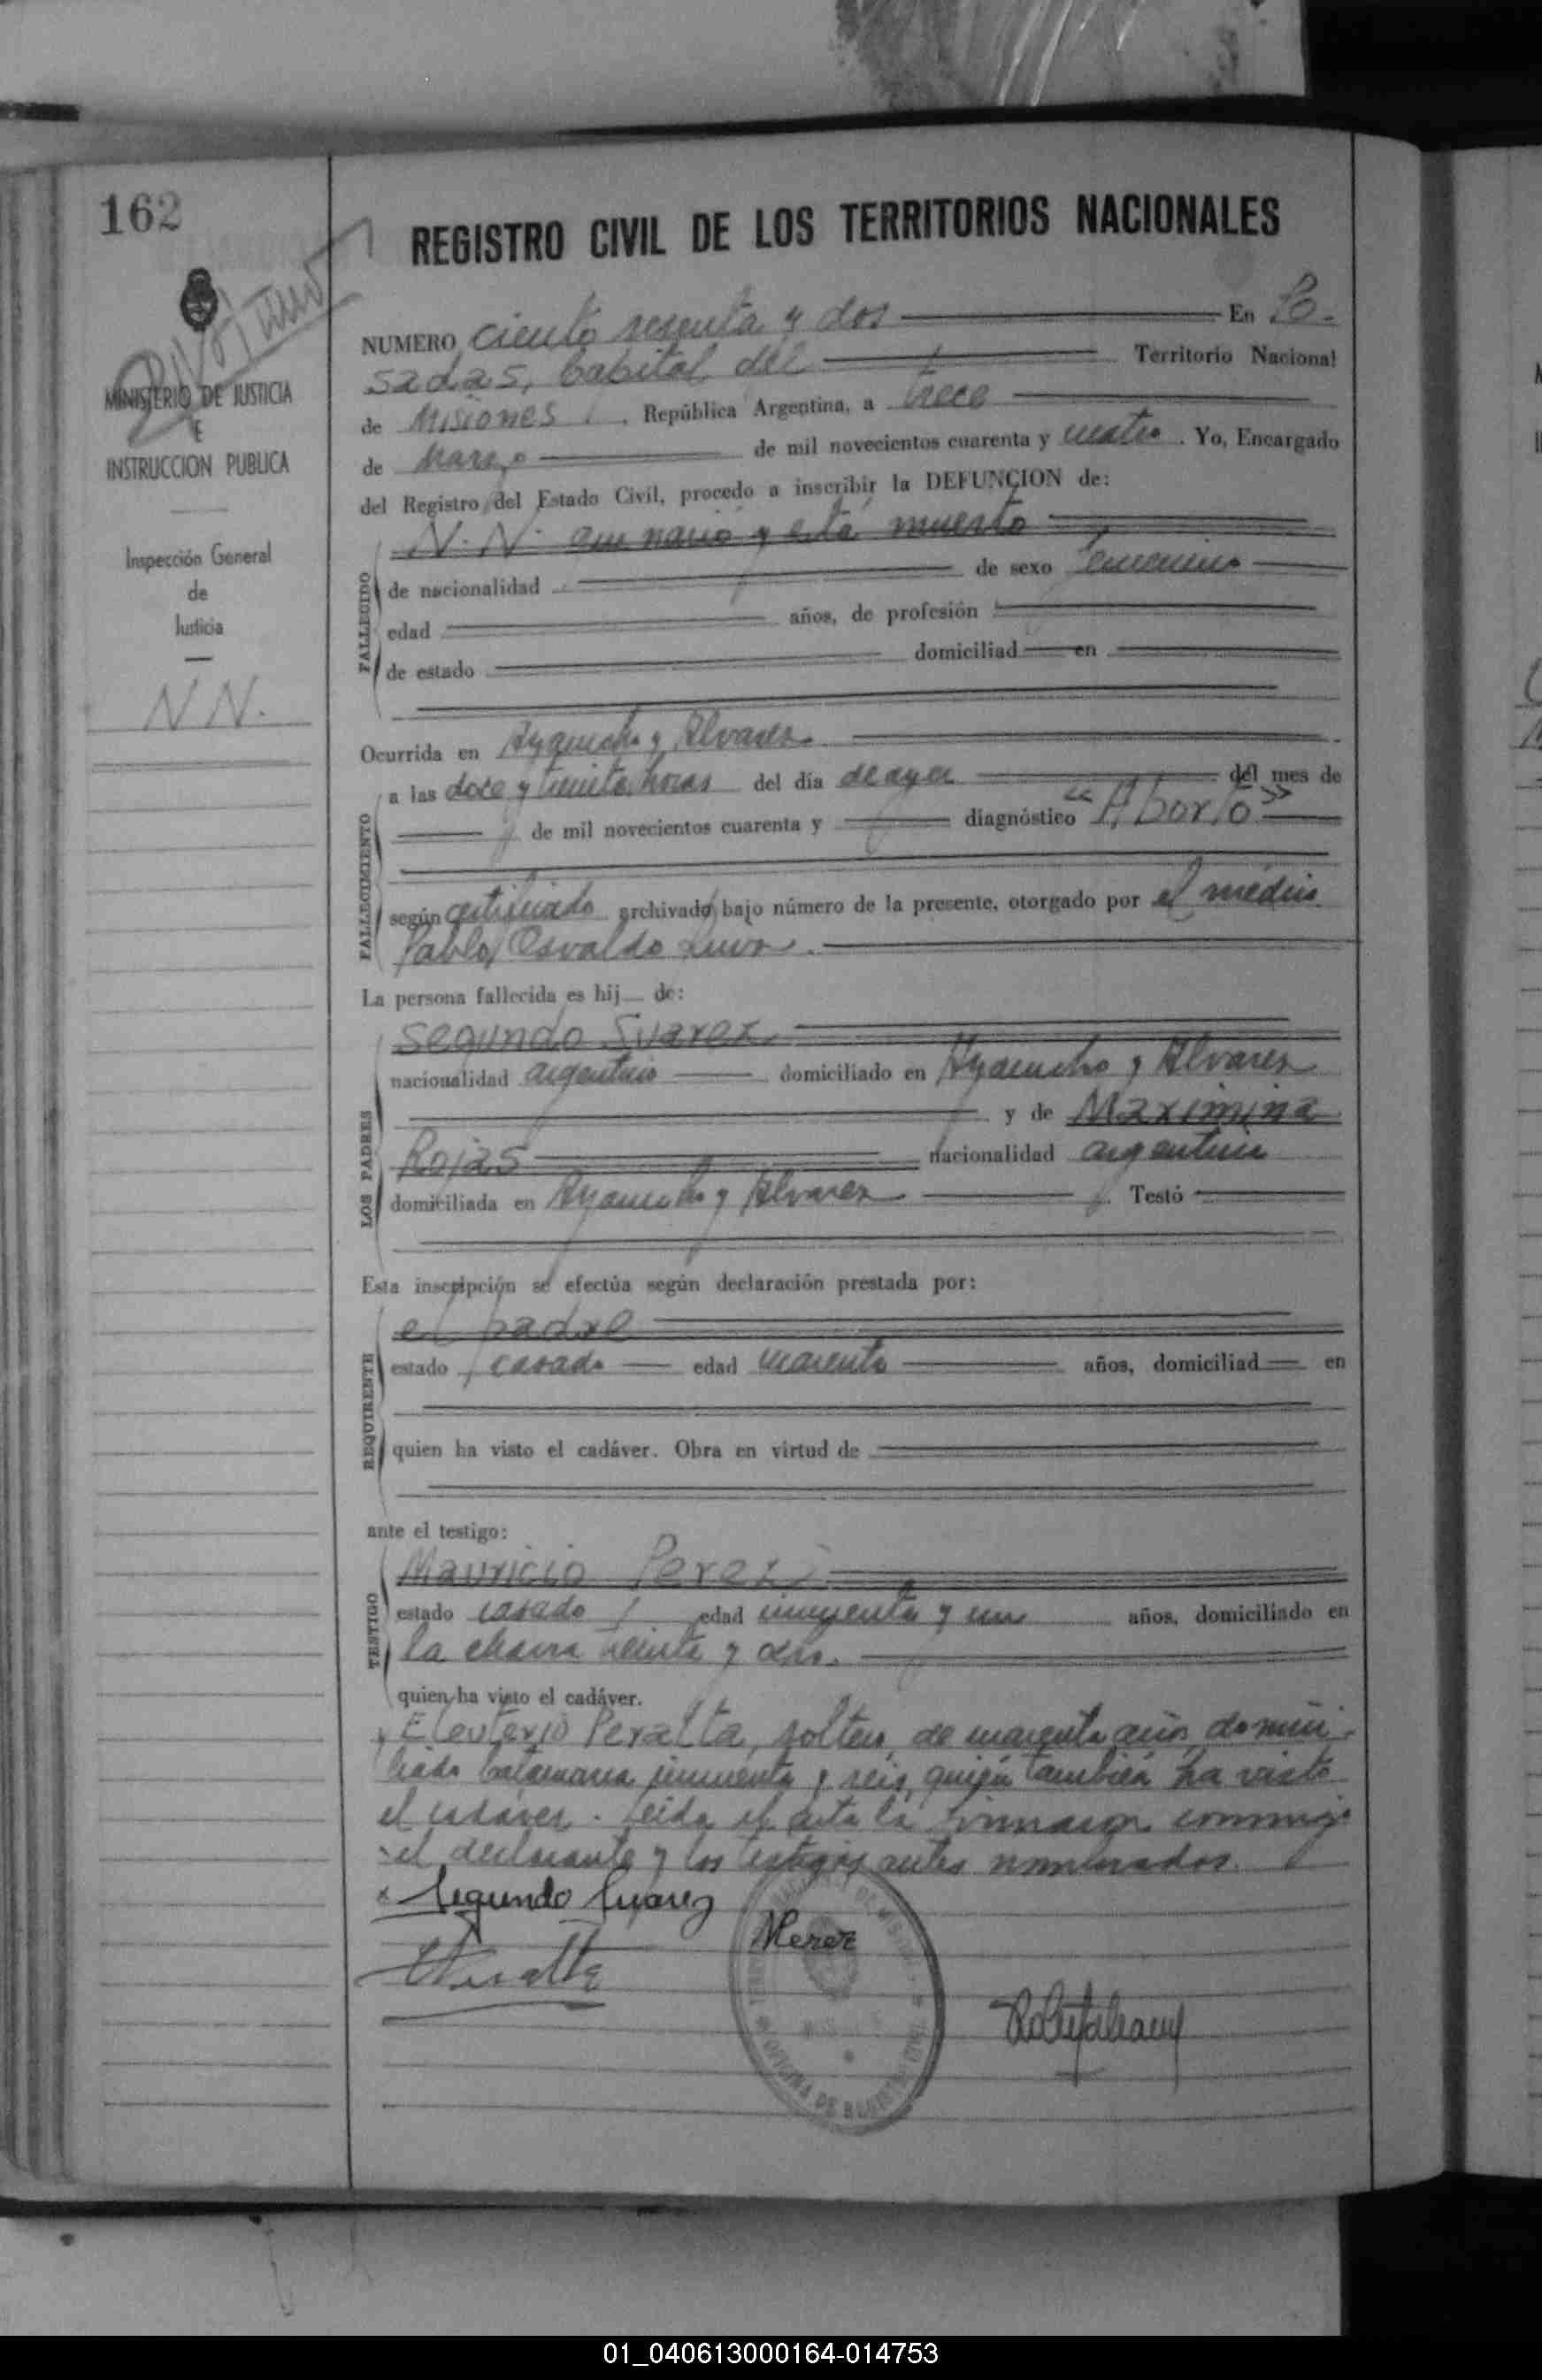 162
REGISTRO CIVIL DE LOS TERRITORIOS NACIONALES
NUMERO ciento sesenta y dos En Po-
sadas, Capital del Territorio Nacional
de Misiones, República Argentina, a trece
de Marzo de mil novecientos cuarenta y cuatro. Yo, Encargado
del Registro del Estado Civil, procedo a inscribir la DEFUNCION de:
MINISTERIO DE JUSTICIA
E
INSTRUCCION PUBLICA
Inspección General
de
Justicia
N N.
FALLECIDO
N. N. que nació y está muerto
de nacionalidad de sexo femenino
edad años, de profesión
de estado domiciliad en
Ocurrida en Ayacucho y Alvarez
FALLECIMIENTO
a las doce y treinta horas del día de ayer del mes de
de mil novecientos cuarenta y diagnóstico "Aborto"
según certificado archivado bajo número de la presente, otorgado por el médico
Pablo Osvaldo
La persona fallecida es hij de:
LOS PADRES
Segundo Suarez
nacionalidad argentino domiciliado en Ayacucho y Alvarez
y de Maximina
Rojas nacionalidad argentina
domiciliada en Ayacucho y Alvarez Testó
Esta inscripción se efectúa según declaración prestada por:
REQUIRENTE
el padre
estado casado edad cuarenta años, domiciliad en
quien ha visto el cadáver. Obra en virtud de
ante el testigo:
TESTIGO
Mauricio Perez
estado casado edad cincuenta y un años, domiciliado en
la chacra treinta y dos.
quien ha visto el cadáver.
y Eleuterio Peralta, soltero, de cuarenta años, domici-
liado Catamarca cincuenta y seis, quién también ha visto
el cadáver. Leida el acta la firmaron conmigo
el declarante y los testigos antes nombrados.
x Segundo Suarez
MPerez
EPeralta
01_040613000164-014753